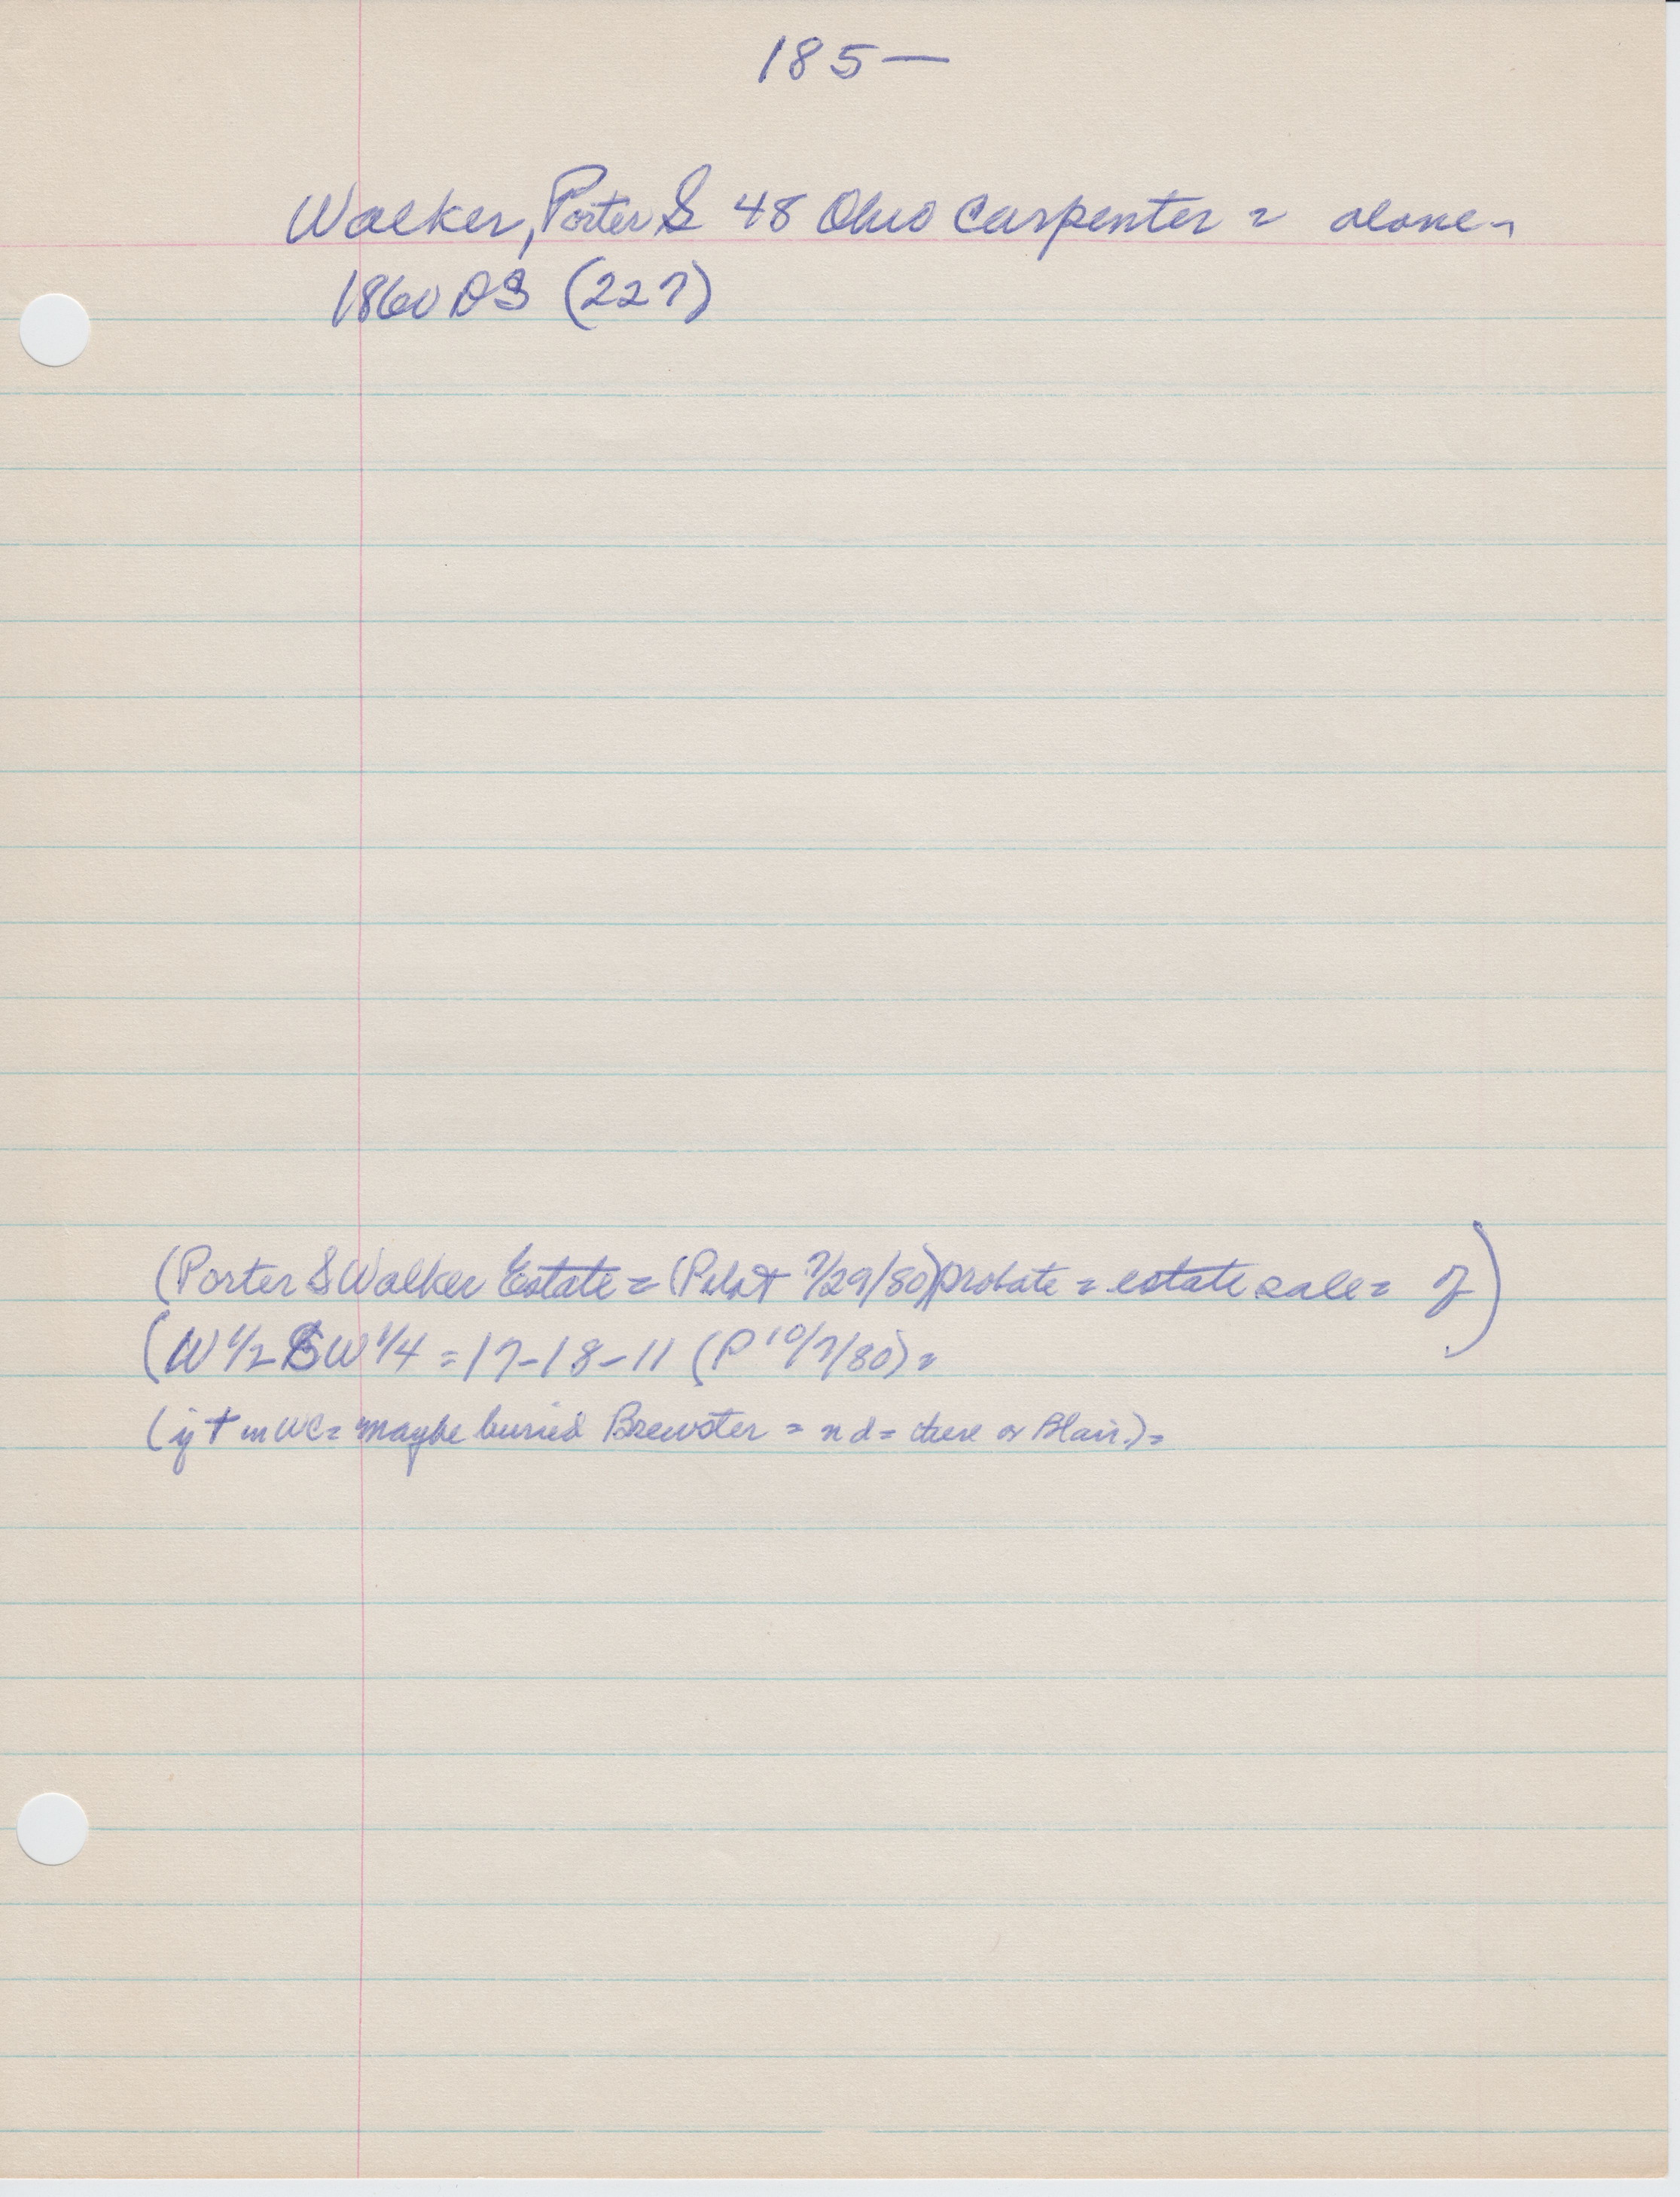 185—
Walker, Porter S 48 Ohio Carpenter = alone -
1860 DS (227)
(Porter S Walker Estate = (Pilot 7/29/80) probate = estate sale = of)
(W 1/2 SW 1/4 = 17-18-11 (P 10/7/80) =
(if † in WC = maybe buried Brewster = nd = there or Blair.) =